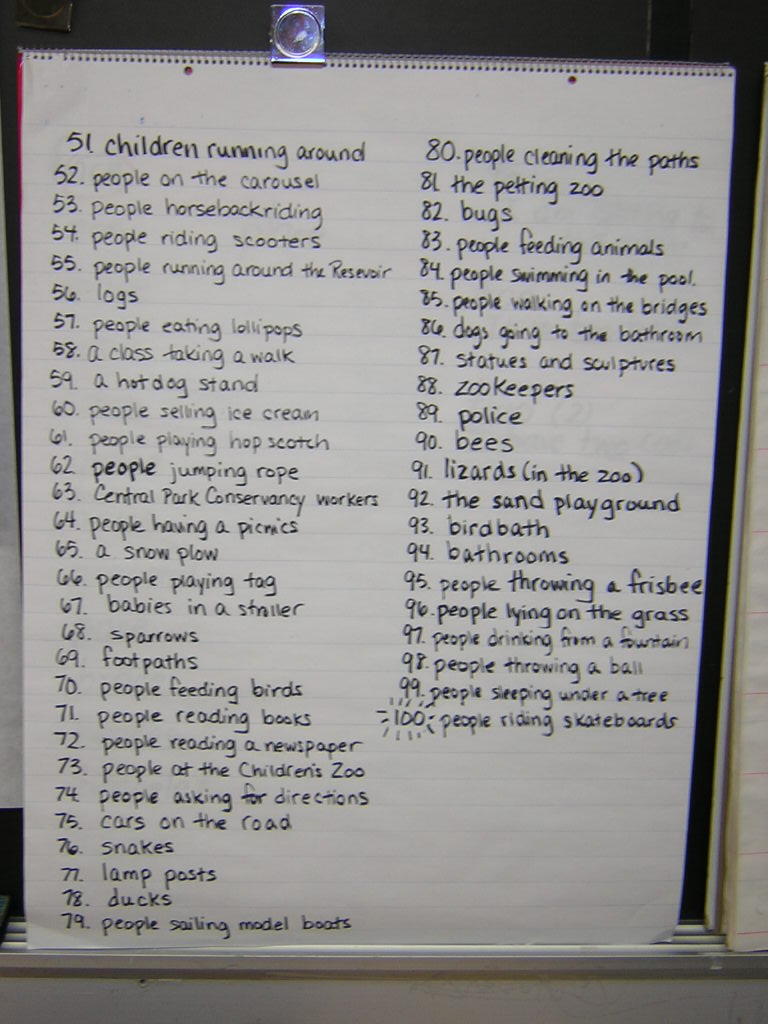 51. children running around
52. people on the carousel
53. people horsebackriding
54. people riding scooters
55. people running around the Resevoir
56. logs
57. people eating lollipops
58. a class taking a walk
59. a hotdog stand
60. people selling ice cream
61. people playing hop scotch
62 people jumping rope
63. Central Park Conservancy workers
64. people having a picnics
65. a snow plow
66. people playing tag
67. babies in a stroller
68. sparrows
69. footpaths
70. people feeding birds
71. people reading books
72. people reading a newspaper
73. people at the Children's Zoo
74. people asking for directions
75. cars on the road
76. snakes
77. lamp posts
78. ducks
79. people sailing model boats
80. people cleaning the paths
81. the petting zoo
82. bugs
83. people feeding animals
84. people swimming in the pool.
85. people walking on the bridges
86. dogs going to the bathroom
87. statues and sculptures
88. zookeepers
89. police
90. bees
91. lizards (in the zoo)
92. the sand playground
93. birdbath
94. bathrooms
95. people throwing a frisbee
96. people lying on the grass
97. people drinking from a fountain
98. people throwing a ball
99. people sleeping under a tree
100. people riding skateboards